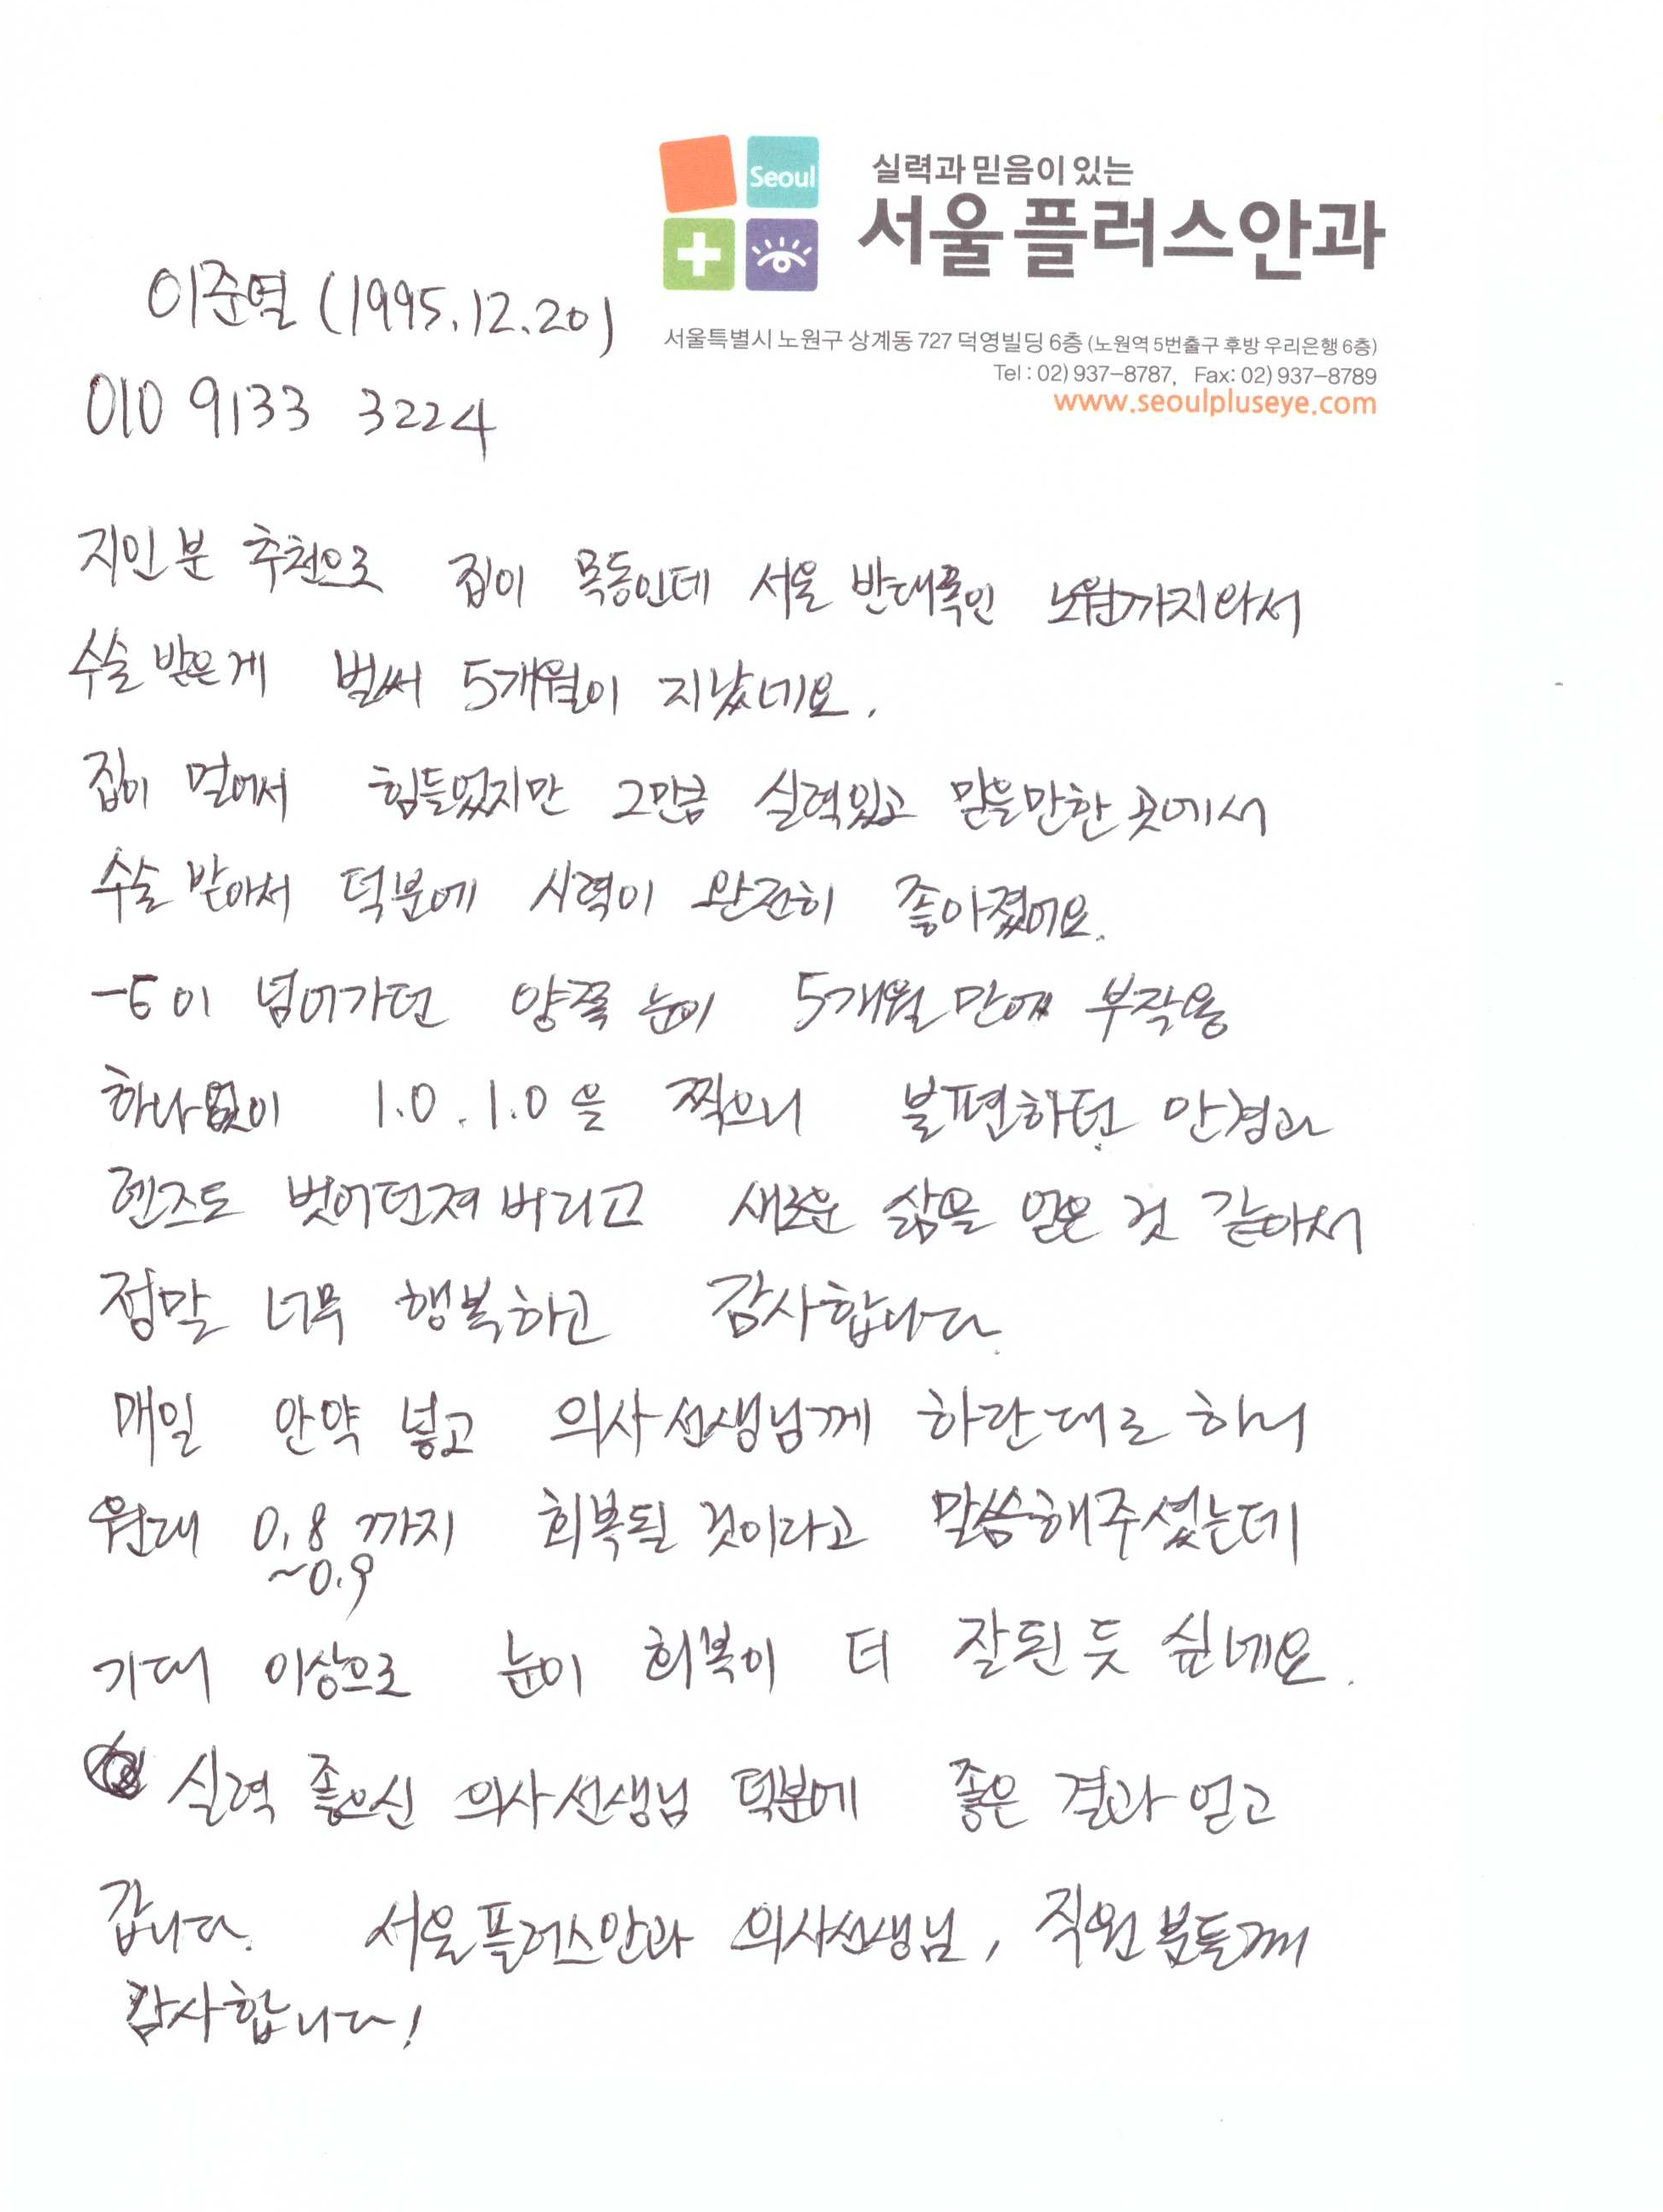 Seoul
실력과 믿음이 있는
서울플러스안과
서울특별시 노원구 상계동 727 덕영빌딩 6층 (노원역 5번출구 후방 우리은행 6층)
Tel : 02) 937-8787, Fax: 02) 937-8789
www.seoulpluseye.com
이준열 (1995.12.20)
010 9133 3224
지인분 추천으로 집이 목동인데 서울 반대쪽인 노원까지와서
수술 받은게 벌써 5개월이 지났네요.
집이 멀어서 힘들었지만 그만큼 실력있고 믿을만한 곳에서
수술 받아서 덕분에 시력이 완전히 좋아졌어요.
이 넘어가던 양쪽 눈이 5개월 만에 부작용
하나없이 1.0. 1.0을 찍으니 불편하던 안경과
렌즈도 벗어던져 버리고 새로운 삶을 얻은 것 같아서
정말 너무 행복하고 감사합니다.
매일 안약 넣고 의사선생님께 하란대로 하니
원래 0.8까지 회복될 것이라고 말씀해주셨는데
~0.9
기대 이상으로 눈이 회복이 더 잘된 듯 싶네요.
실력 좋으신 의사선생님 덕분에 좋은 결과 얻고
갑니다. 서울플러스안과 의사선생님, 직원분들께
감사합니다!